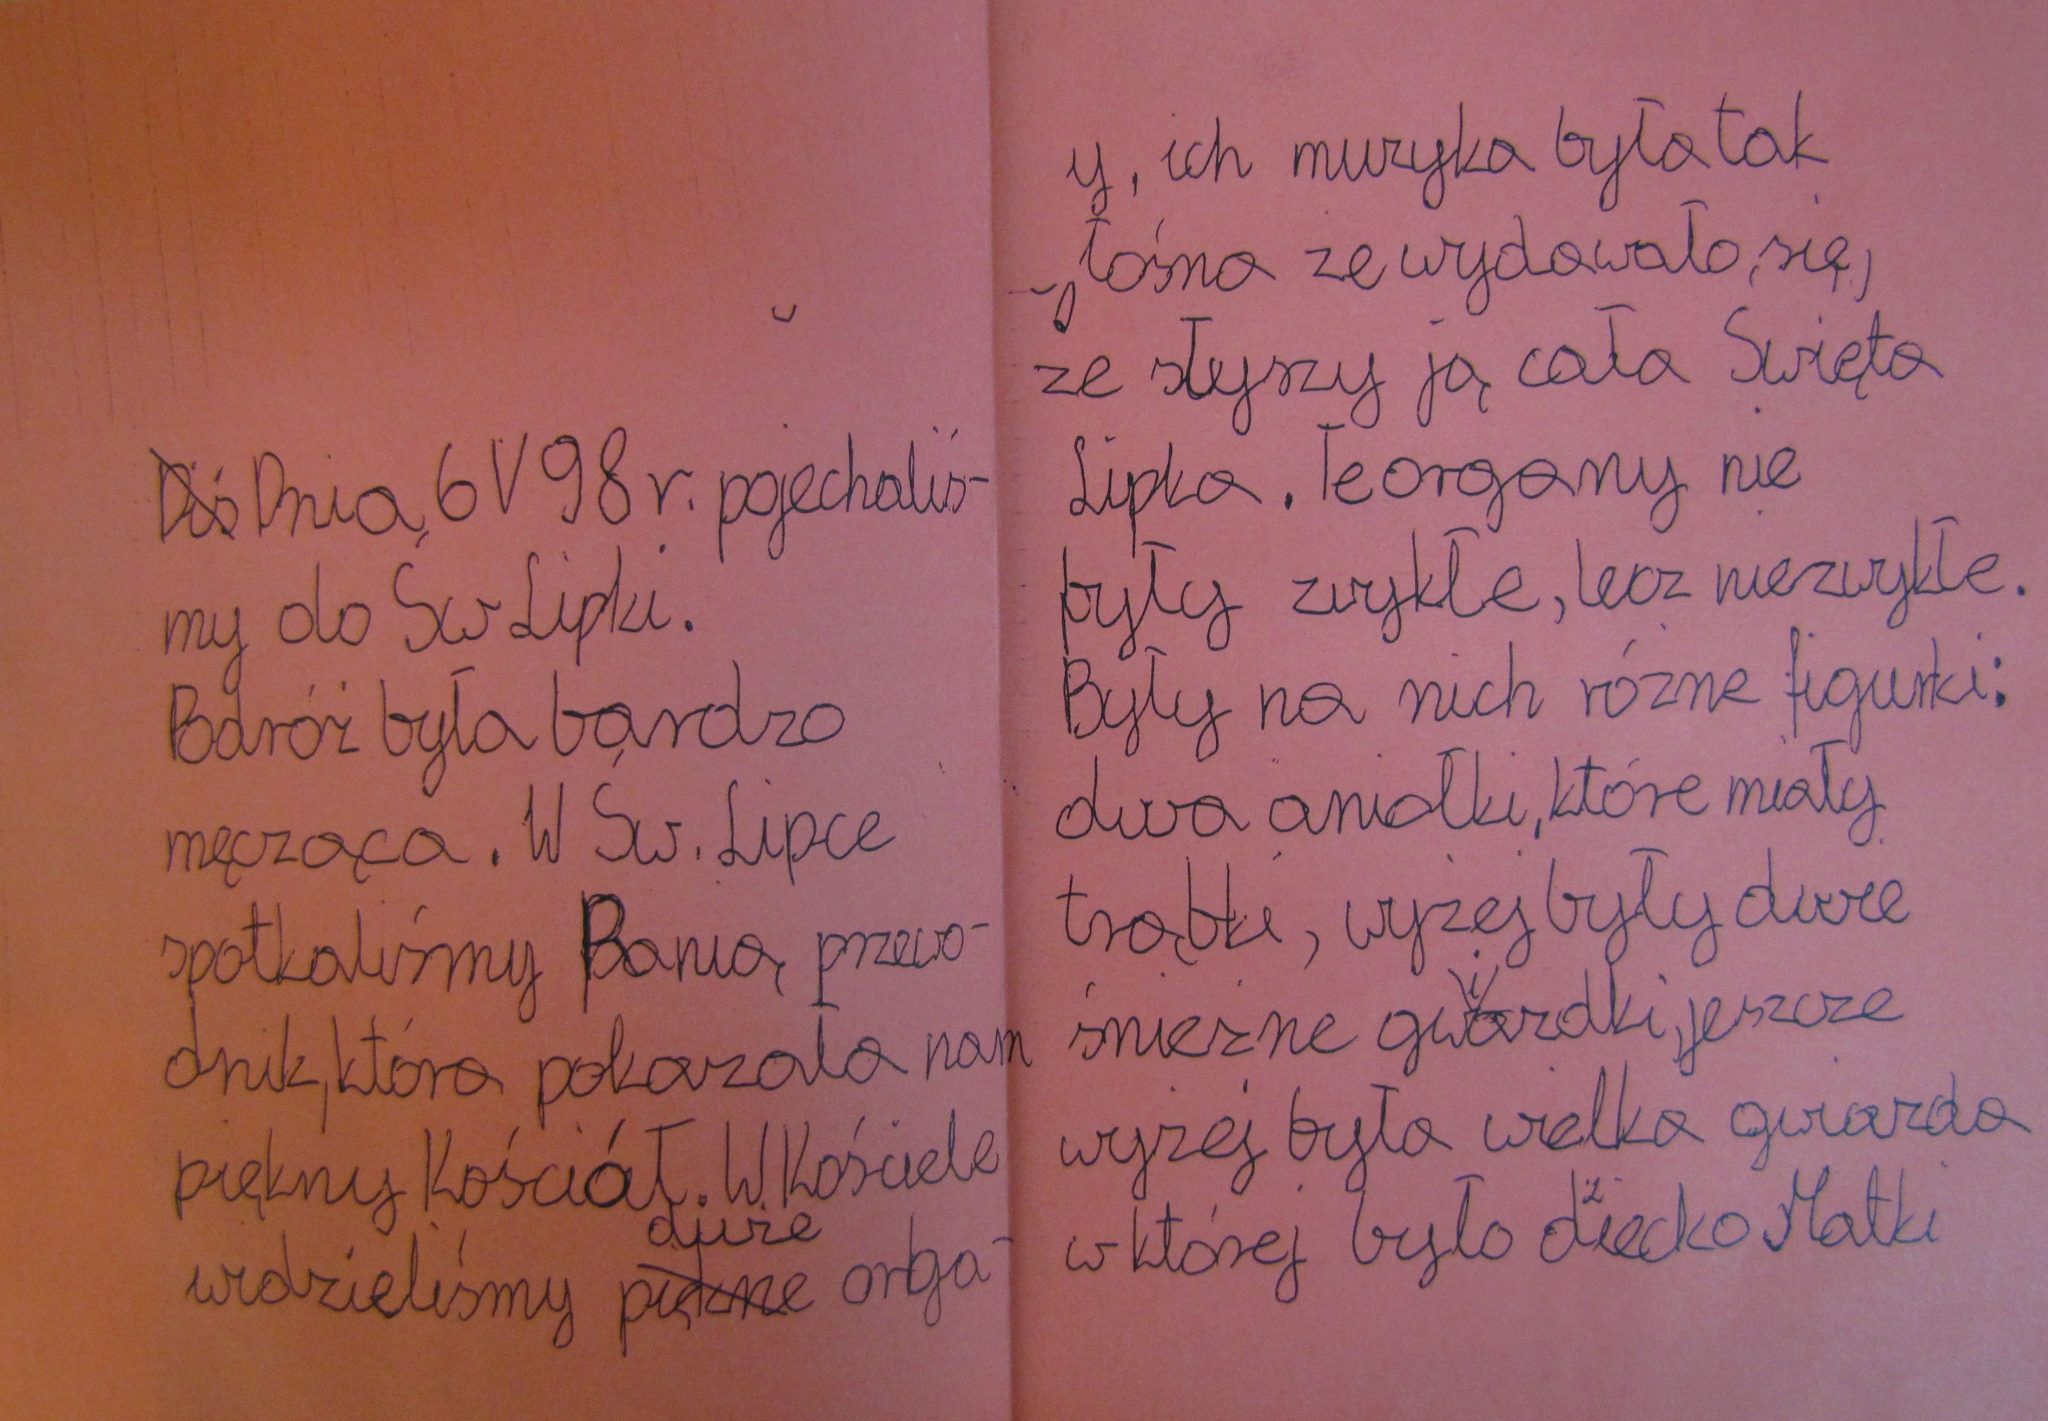 Dziś Dnia 6 V 98 r. pojechaliś-
my do Św Lipki.
Podróż była bardzo
męcząca. W Św. Lipce
spotkaliśmy Panią przewo-
dnik, która pokazała nam
piękny Kościół. W Kościele
duże
widzieliśmy piękne orga-
y, ich muzyka była tak
głośna ze wydawało, się,
ze słyszy ją cała Święta
Lipka. Te organy nie
były zwykłe, lecz niezwykłe.
Były na nich rózne figurki:
dwa aniołki, które miały
trąbki, wyżej były duże
śnieżne gwiazdki, jeszcze
wyzej była wielka gwiazda
w której było dziecko Matki